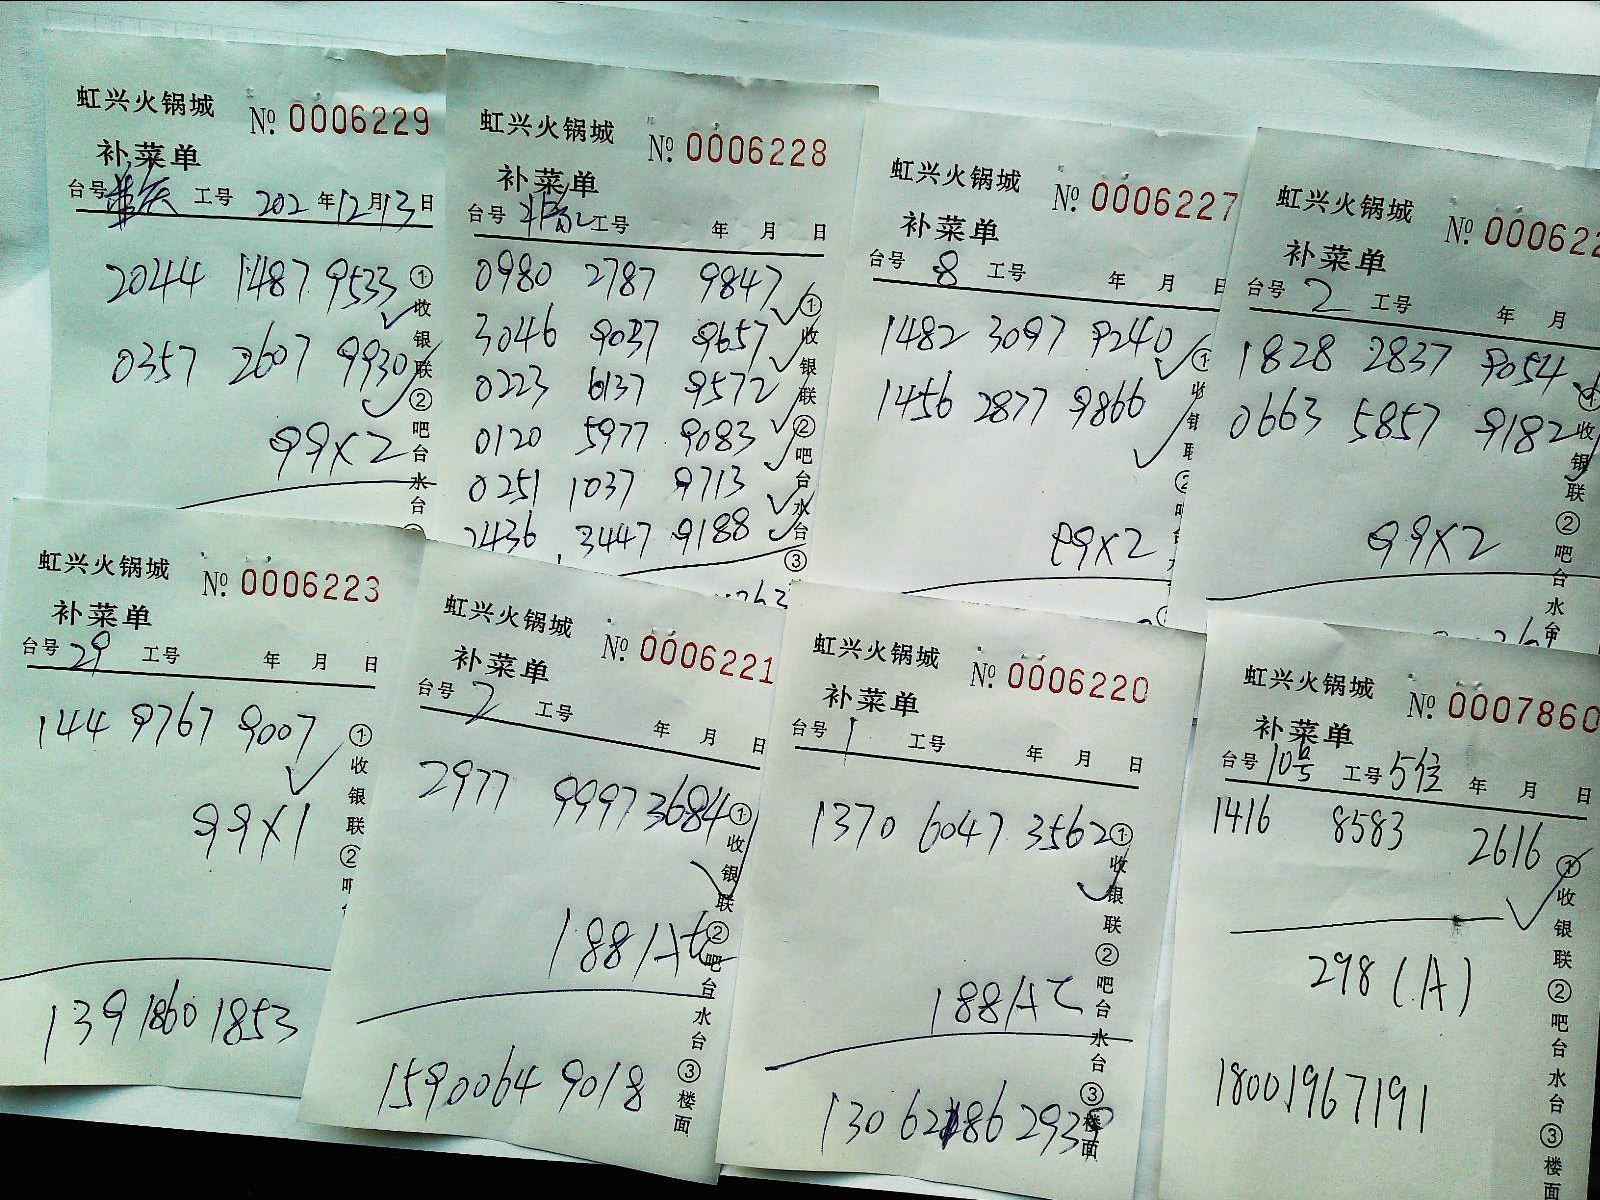 虹兴火锅城 № 0006229
补菜单
台号 工号 202 年12月13日
2044 1487 9533
0357 2607 9930
99×2
①收银联②吧台水台
虹兴火锅城 № 0006228
补菜单
台号 工号 年 月 日
0980 2787 9847
3046 9037 9657
0223 6137 9572
0120 5977 9083
0251 1037 9713
2436 3447 9188
①收银联②吧台水台③
虹兴火锅城 № 0006227
补菜单
台号 8 工号 年 月 日
1482 3097 9240
1456 2877 9866
99×2
①收银联②吧
虹兴火锅城 № 000622
补菜单
台号 2 工号 年 月
1828 2837 9054
0663 5857 9182
99×2
①收银联②吧台水台
虹兴火锅城 № 0006223
补菜单
台号 29 工号 年 月 日
144 9767 9007
99×1
①收银联②吧
139 1860 1853
虹兴火锅城 № 0006221
补菜单
台号 2 工号 年 月 日
2977 9997 3684
188/A
①收银联②吧台水台③楼面
1590064 9018
虹兴火锅城 № 0006220
补菜单
台号 1 工号 年 月 日
1370 6047 3562
188/A
①收银联②吧台水台③楼面
虹兴火锅城 № 0007860
补菜单
台号 10号 工号 5位 年 月 日
1416 8583 2616
298 (A)
①收银联②吧台水台③楼面
18001967191